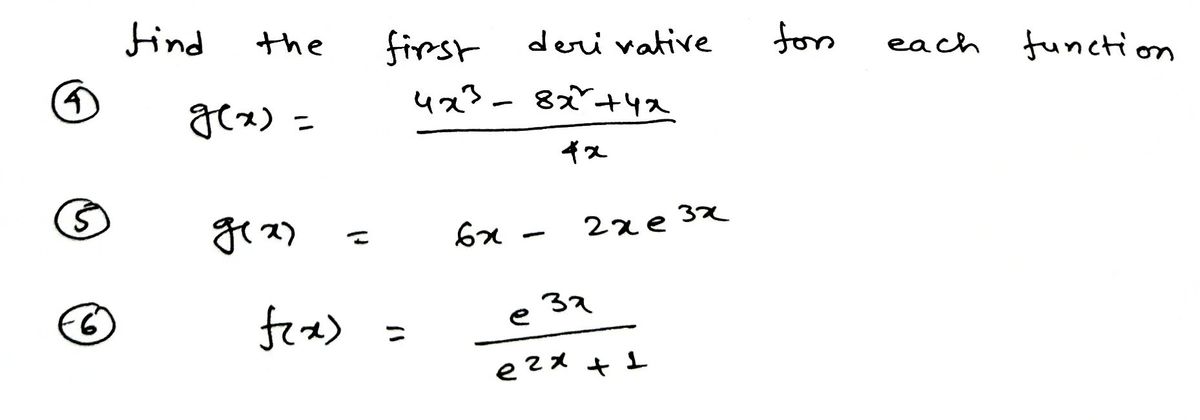 find the first derivative for each function
④ g(x) = 4x³ - 8x² + 4x
4x
⑤ g(x) = 6x - 2xe^3x
⑥ f(x) = e^3x
e^2x + 1